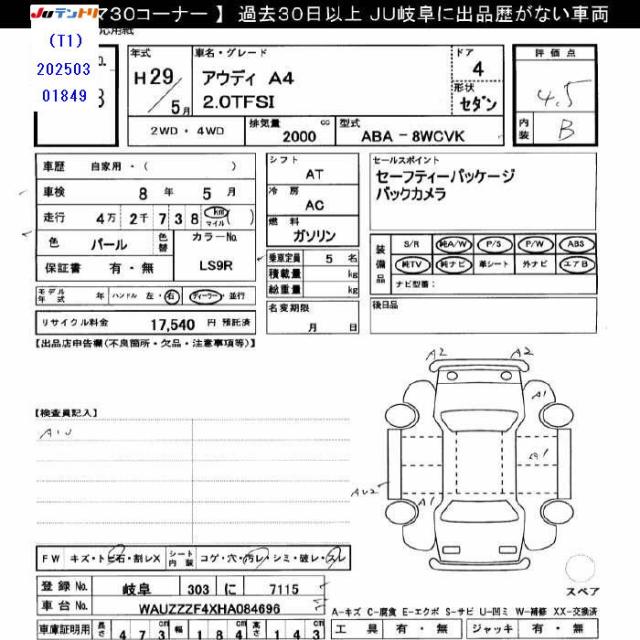 JUテントリ
マ30コーナー 】 過去30日以上 JU岐阜に出品歴がない車両
(T1)
202503
01849
年式 H29 / 5月
車名・グレード
アウディ A4
2.0TFSI
ドア 4
形状 セダン
評価点 4.5
内装 B
2WD ・ 4WD
排気量 2000 cc
型式 ABA - 8WCVK
車歴 自家用 ・ ( )
車検 8 年 5 月
走行 4万 2千 7 3 8 km マイル ( )
色 パール 色替
カラーNo. LS9R
保証書 有 ・ 無
モデル年式 年 ハンドル 左 ・ 右 ディーラー ・ 並行
リサイクル料金 17,540 円 預託済
シフト AT
冷房 AC
燃料 ガソリン
乗車定員 5 名
積載量 kg
総重量 kg
名変期限
月 日
セールスポイント
セーフティーパッケージ
バックカメラ
装備品 S/R 純A/W P/S P/W ABS
純TV 純ナビ 革シート 外ナビ エアB
ナビ型番：
後日品
【出品店申告欄(不良箇所・欠品・注意事項等)】
【検査員記入】
A2 A2
A1
A1
AU2
A1
FW キズ・トビ石・割レX シート内装 コゲ・穴・汚レ・シミ・破レ・スレ
登録No. 岐阜 303 に 7115
車台No. WAUZZZF4XHA084696
スペア
A-キズ C-腐食 E-エクボ S-サビ U-凹ミ W-補修 XX-交換済
車庫証明用 長さ 4 7 3 cm 幅 1 8 4 cm 高さ 1 4 3 cm
工具 有 ・ 無 ジャッキ 有 ・ 無